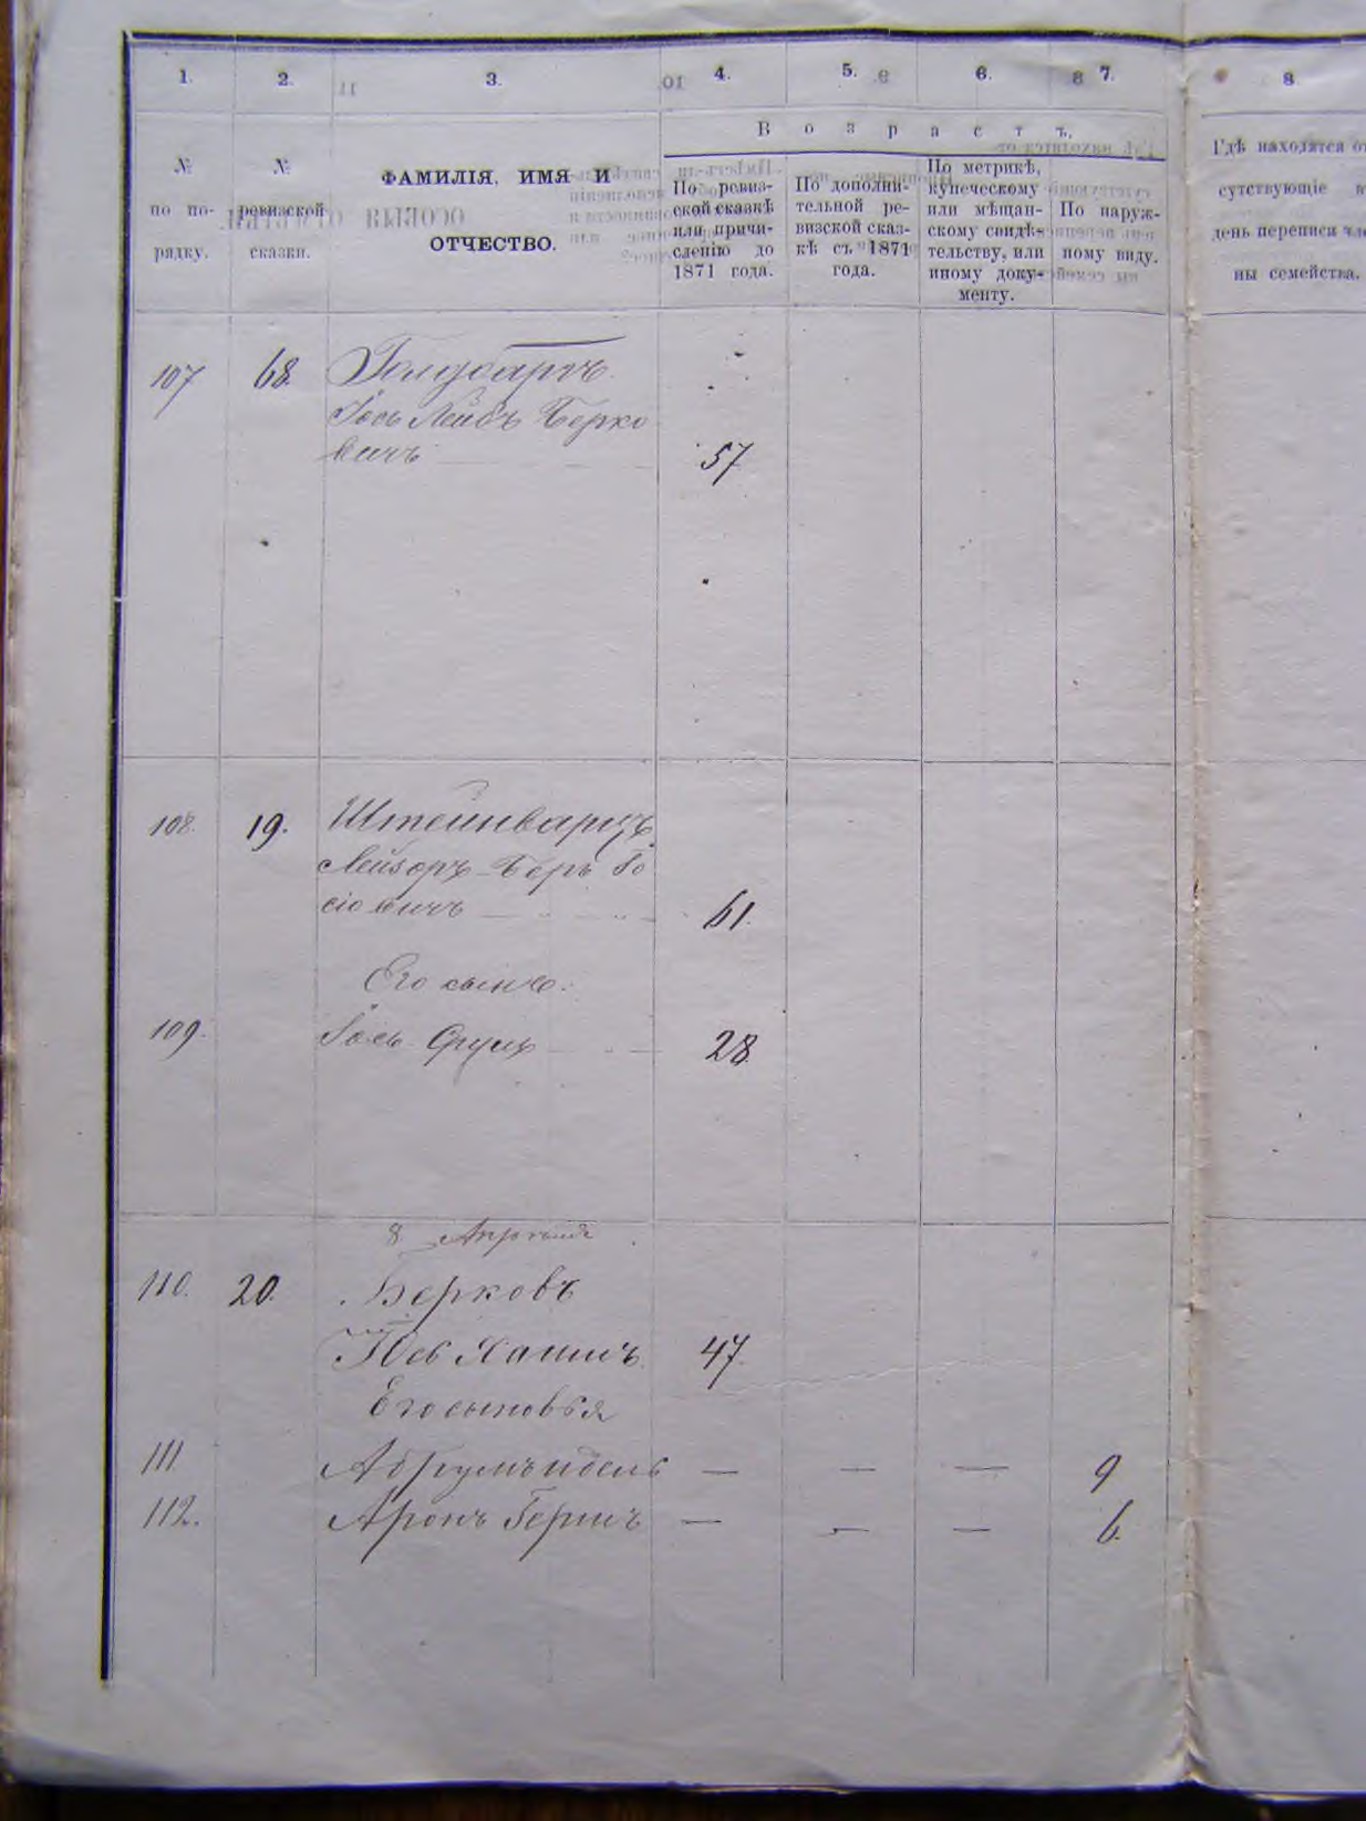 1. 2. 3. 4. 5. 6. 7. 8
Возрастъ.
№ по по-
рядку.
№
ревизской
сказки.
ФАМИЛІЯ, ИМЯ И
ОТЧЕСТВО.
По ревиз-
ской сказкѣ
или причи-
сленію до
1871 года.
По дополни-
тельной ре-
визской сказ-
кѣ съ 1871
года.
По метрикѣ,
купеческому
или мѣщан-
скому свидѣ-
тельству, или
иному доку-
менту.
По наруж-
ному виду.
Гдѣ находятся от
сутствующіе в
день переписи чле
ны семейства.
107 68.
Іось Лейбъ Берко
вичъ 57
108. 19. Штейнварцъ
Лейзоръ Беръ Іо
сіовичъ 61.
Его сынъ.
109. Іось Сруль 28.
8 Апрѣля
110. 20. Берковъ
Іось Хаимъ 47.
Его сыновья
111 Абрумъ Идель — — — 9
112. Аронъ Гершъ — — — 6.